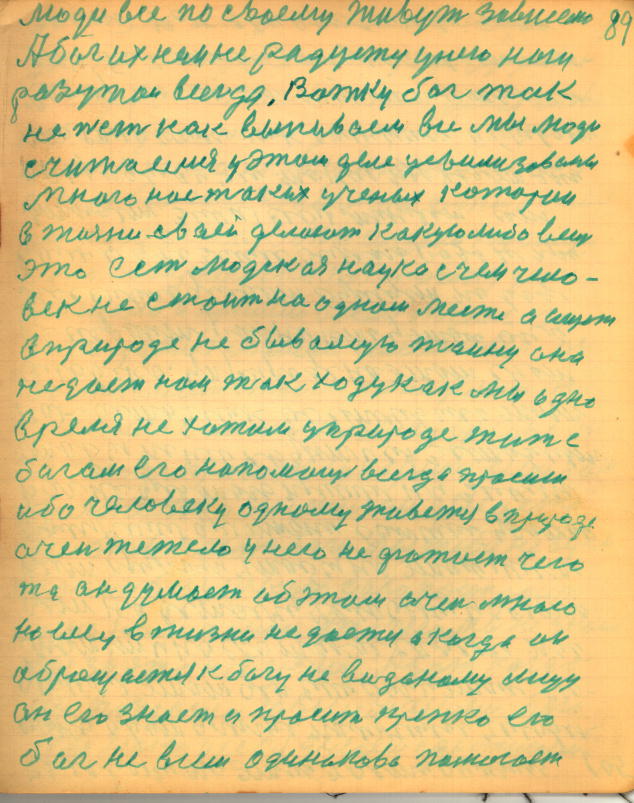 люди все по своему живут зависемо 89
А бог их ним не радуется у него ноги
разутои всегда, Водку бог так
не пет как выпиваем все мы люди
считаемся у этом деле цевилизованы
много нас таких ученых которои
в жизни своей делоют какуюлибо вещ
это Ест людская наука с чем чело-
век не стоит на одном месте а ищет
в природе не бываюлую тайну она
не дает нам так ходу как мы одно
время не хотим у природе жит с
богам его на помощ всегда просим
ибо человеку одному живется в природе
очен тежело у него не фатает чего
та он думает об этом очен много
но ему в жизни не дается а когда он
обращается к богу не виданому лицу
он его знает и просит крепко его
бог не всем одинаково помогает